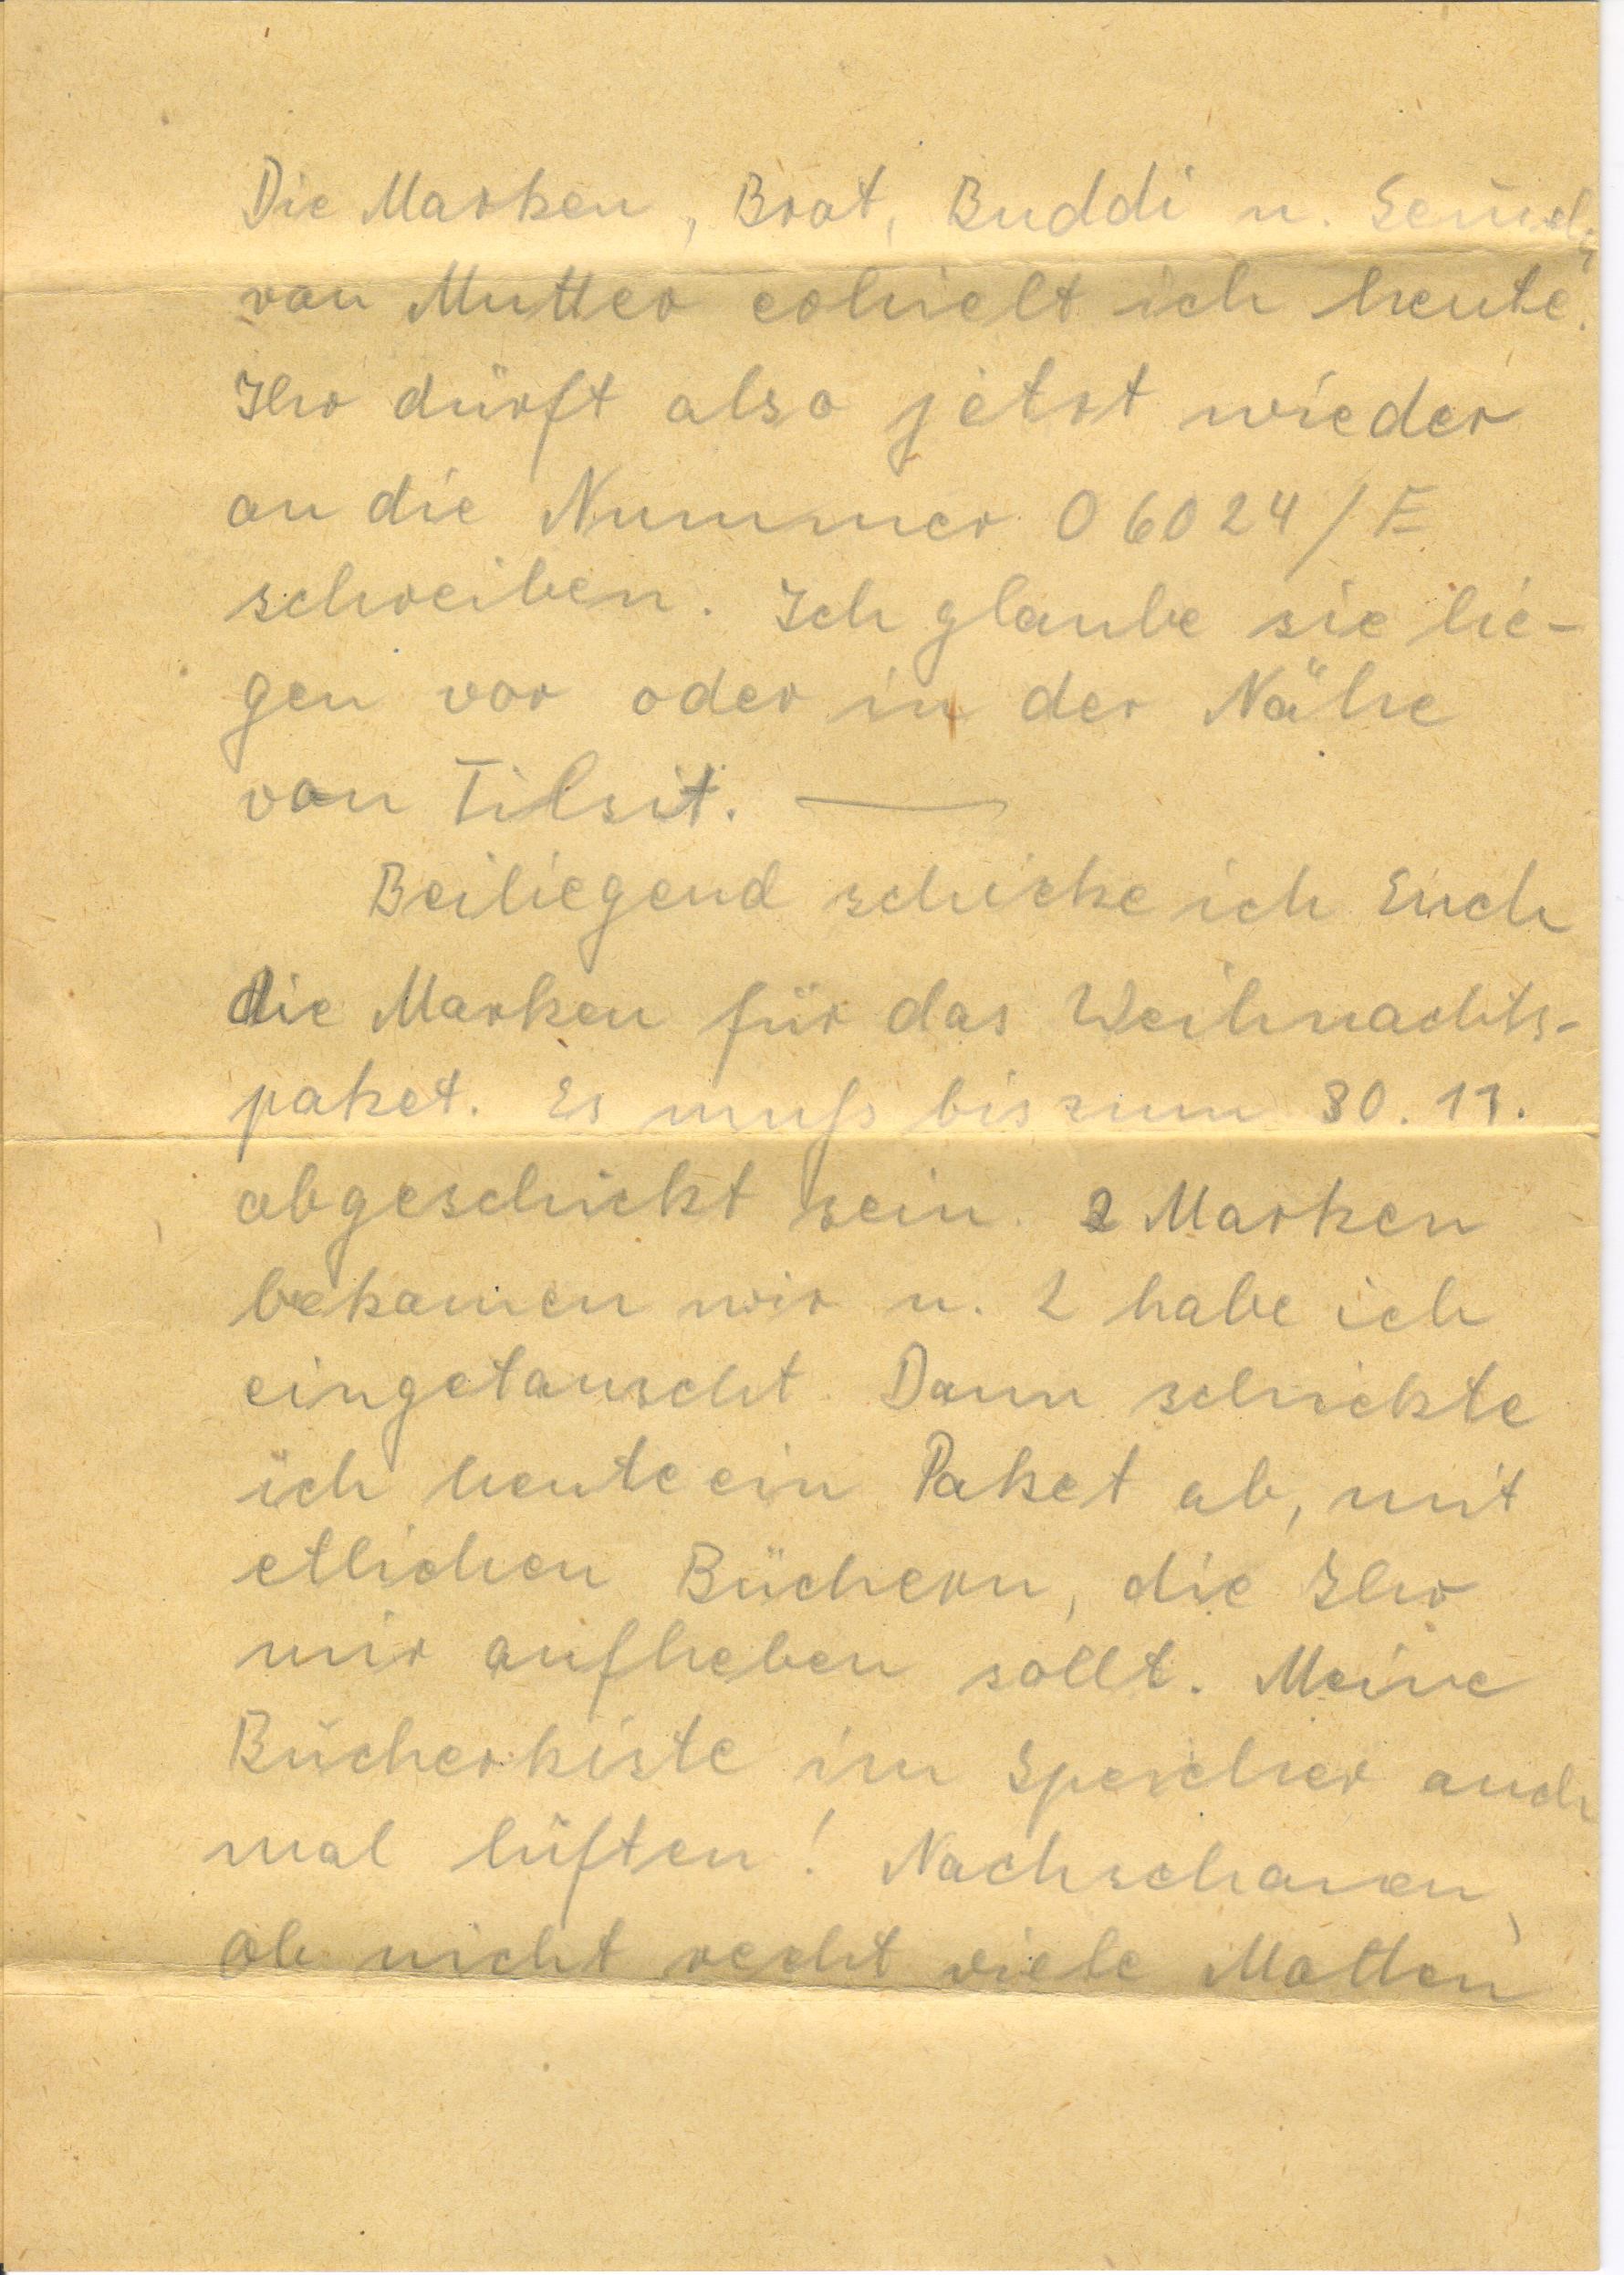 Die Marken, Brot, Buddi u.
von Mutter erhielt ich heute.
Ihr dürft also jetzt wieder
an die Nummer 06024/E
schreiben. Ich glaube sie lie-
gen vor oder in der Nähe
von Tilsit. —
Beiliegend schicke ich Euch
die Marken für das Weihnachts-
paket. Es muß bis zum 30. 11.
abgeschickt sein. 2 Marken
bekamen wir u. 2 habe ich
eingetauscht. Dann schickte
ich heute ein Paket ab, mit
etlichen Büchern, die Ihr
mir aufheben sollt. Meine
Bücherkiste im Speicher auch
mal lüften! Nachschauen,
ob nicht recht viele Motten